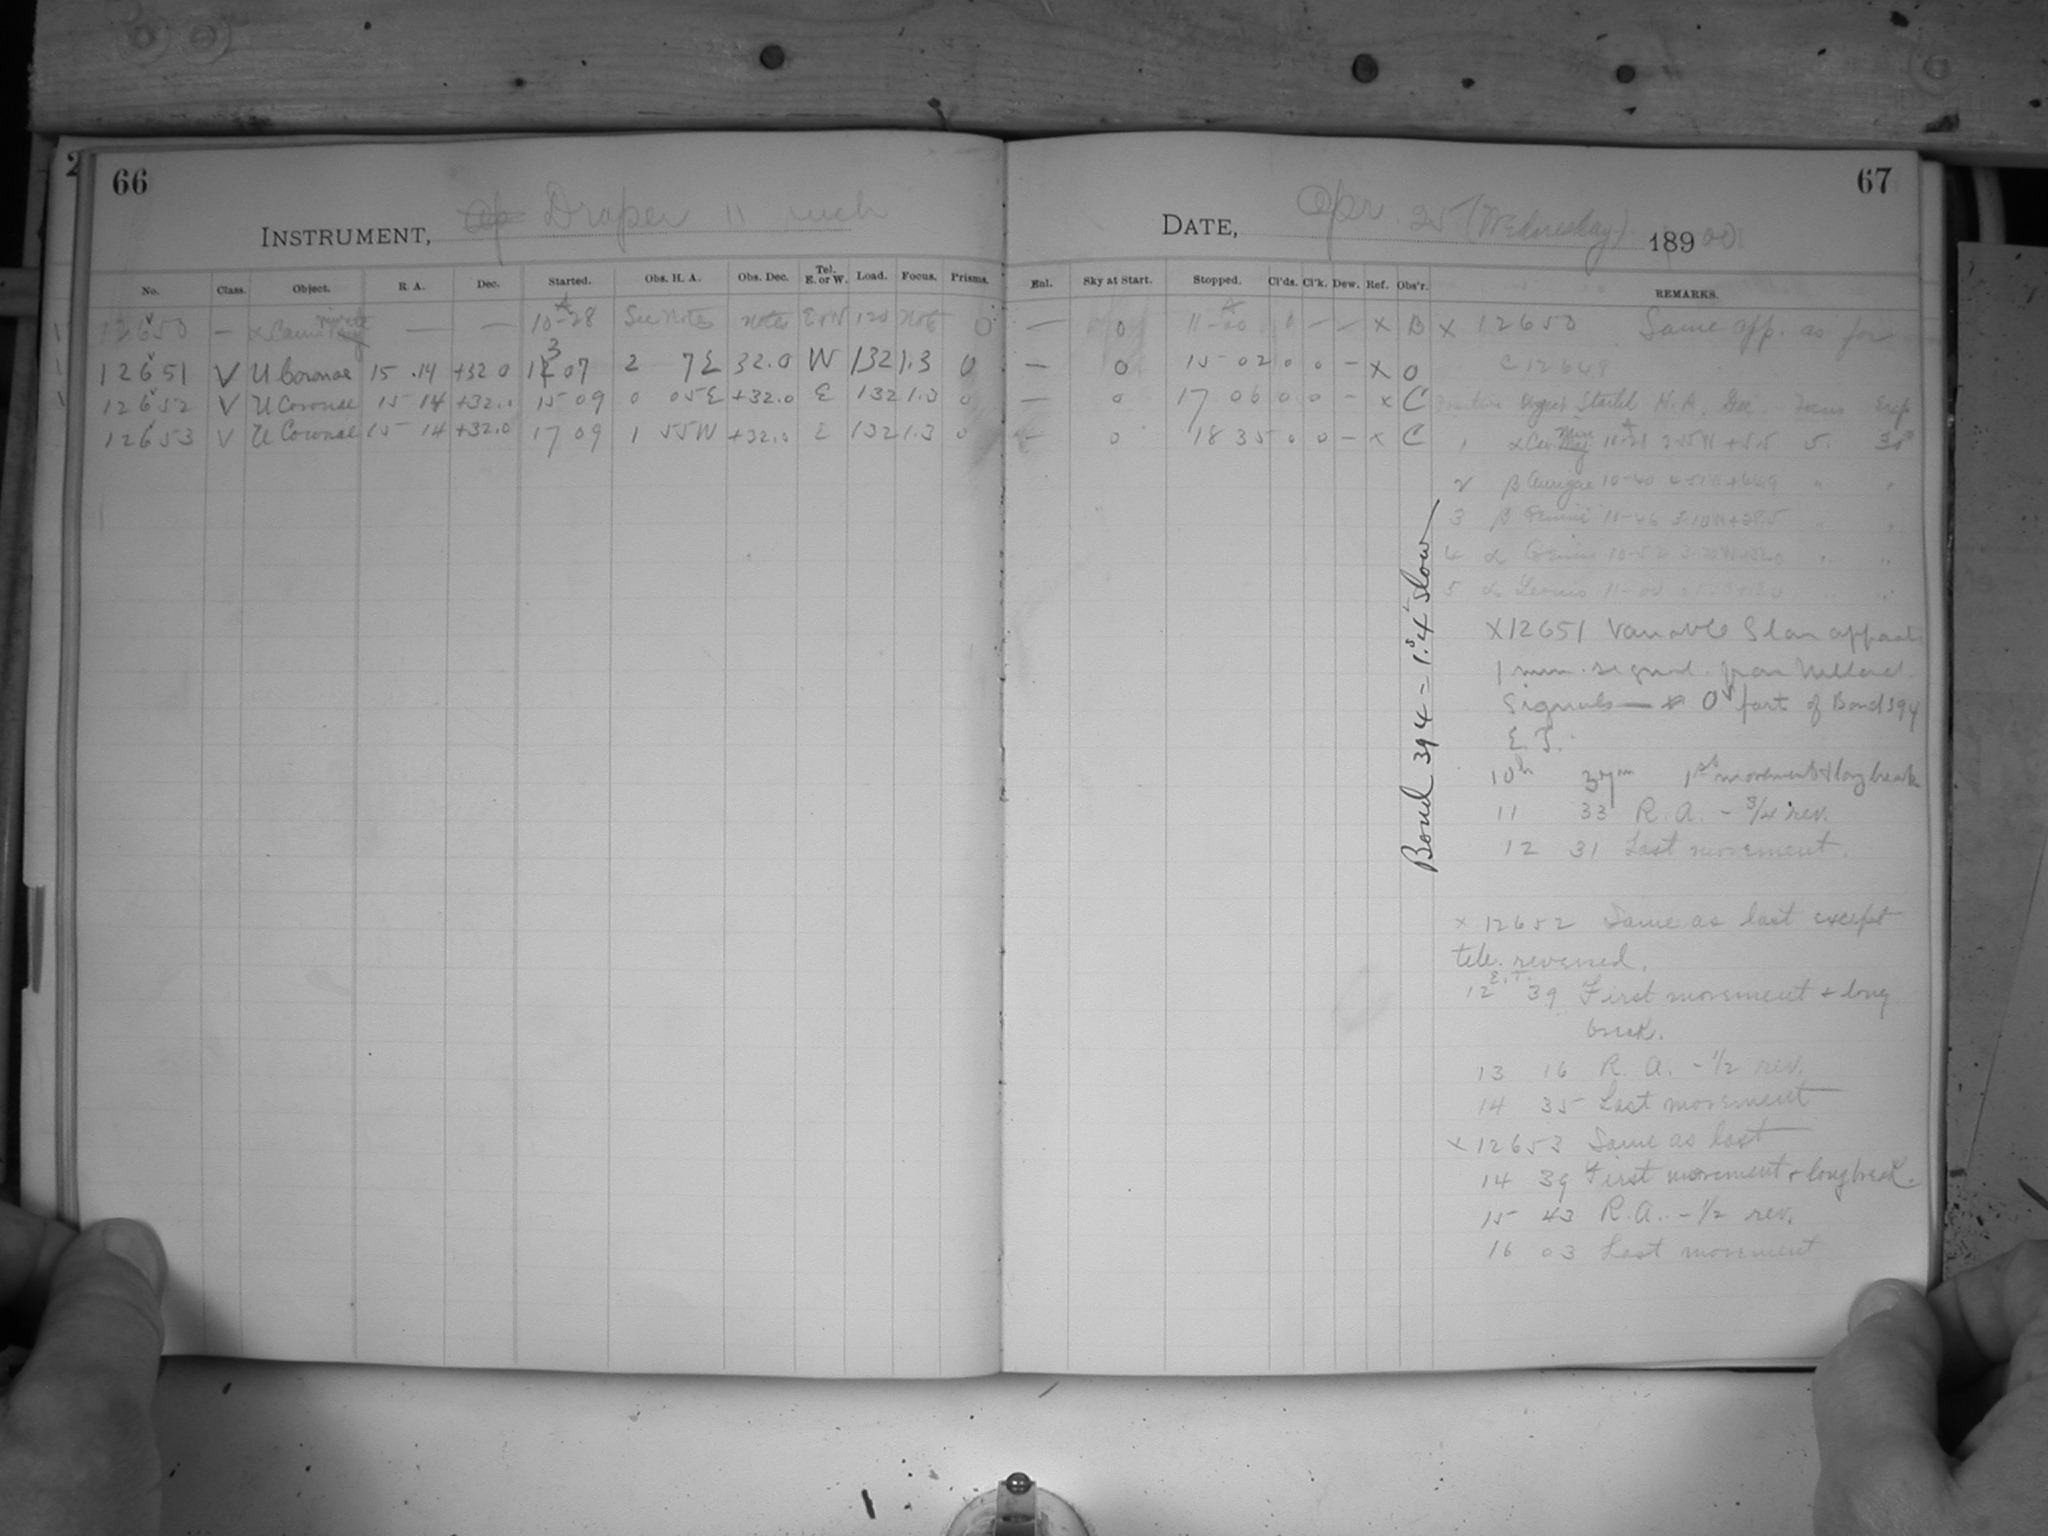 66
INSTRUMENT, Draper 11 inch
No. Class. Object. R. A. Dec. Started. Obs. H. A. Obs. Dec. Tel. E. or W. Load. Focus. Prisms.
12650 — — — 10-28 See Notes Notes E or W 120 Not 0
12651 V U Coronae 15 .14 +32 0 13 07 2 7 E 32.0 W 132 1.3 0
12652 V U Coronae 15 14 +32.0 15 09 0 05 E +32.0 E 132 1.3 0
12653 V U Coronae 15 14 +32.0 17 09 1 55 W +32.0 E 132 1.3 0
67
DATE, Apr 25 (Wednesday) 189 00
Enl. Sky at Start. Stopped. Cl'ds. Cl'k. Dew. Ref. Obs'r. REMARKS.
— 0 — — X B X 12650 Same app. as for
— 0 15 02 0 0 — X O C 12648
— 0 17 06 0 0 — X C Object Started H. A. Dec. Focus Exp
— 0 18 35 0 0 — X C 1
2 β Aurigae 10-40
3 β Gemini 10-46
4 α Gemini 10-52
5 α Leonis 11-00
Bond 394 = 1.s4 slow
X 12651 Variable Star
1 min. signal. from Willard
Signals — fast of Bond 394
E. T.
10h 37m 1st movement & long break
11 33 R. A. - 3/4 rev.
12 31 Last movement.
x 12652 Same as last except
tele. reversed.
E. T.
12 39 First movement & long
break.
13 16 R. A. - 1/2 rev.
14 35 Last movement
x 12653 Same as last
14 39 First movement & long break.
15 43 R. A. - 1/2 rev.
16 03 Last movement